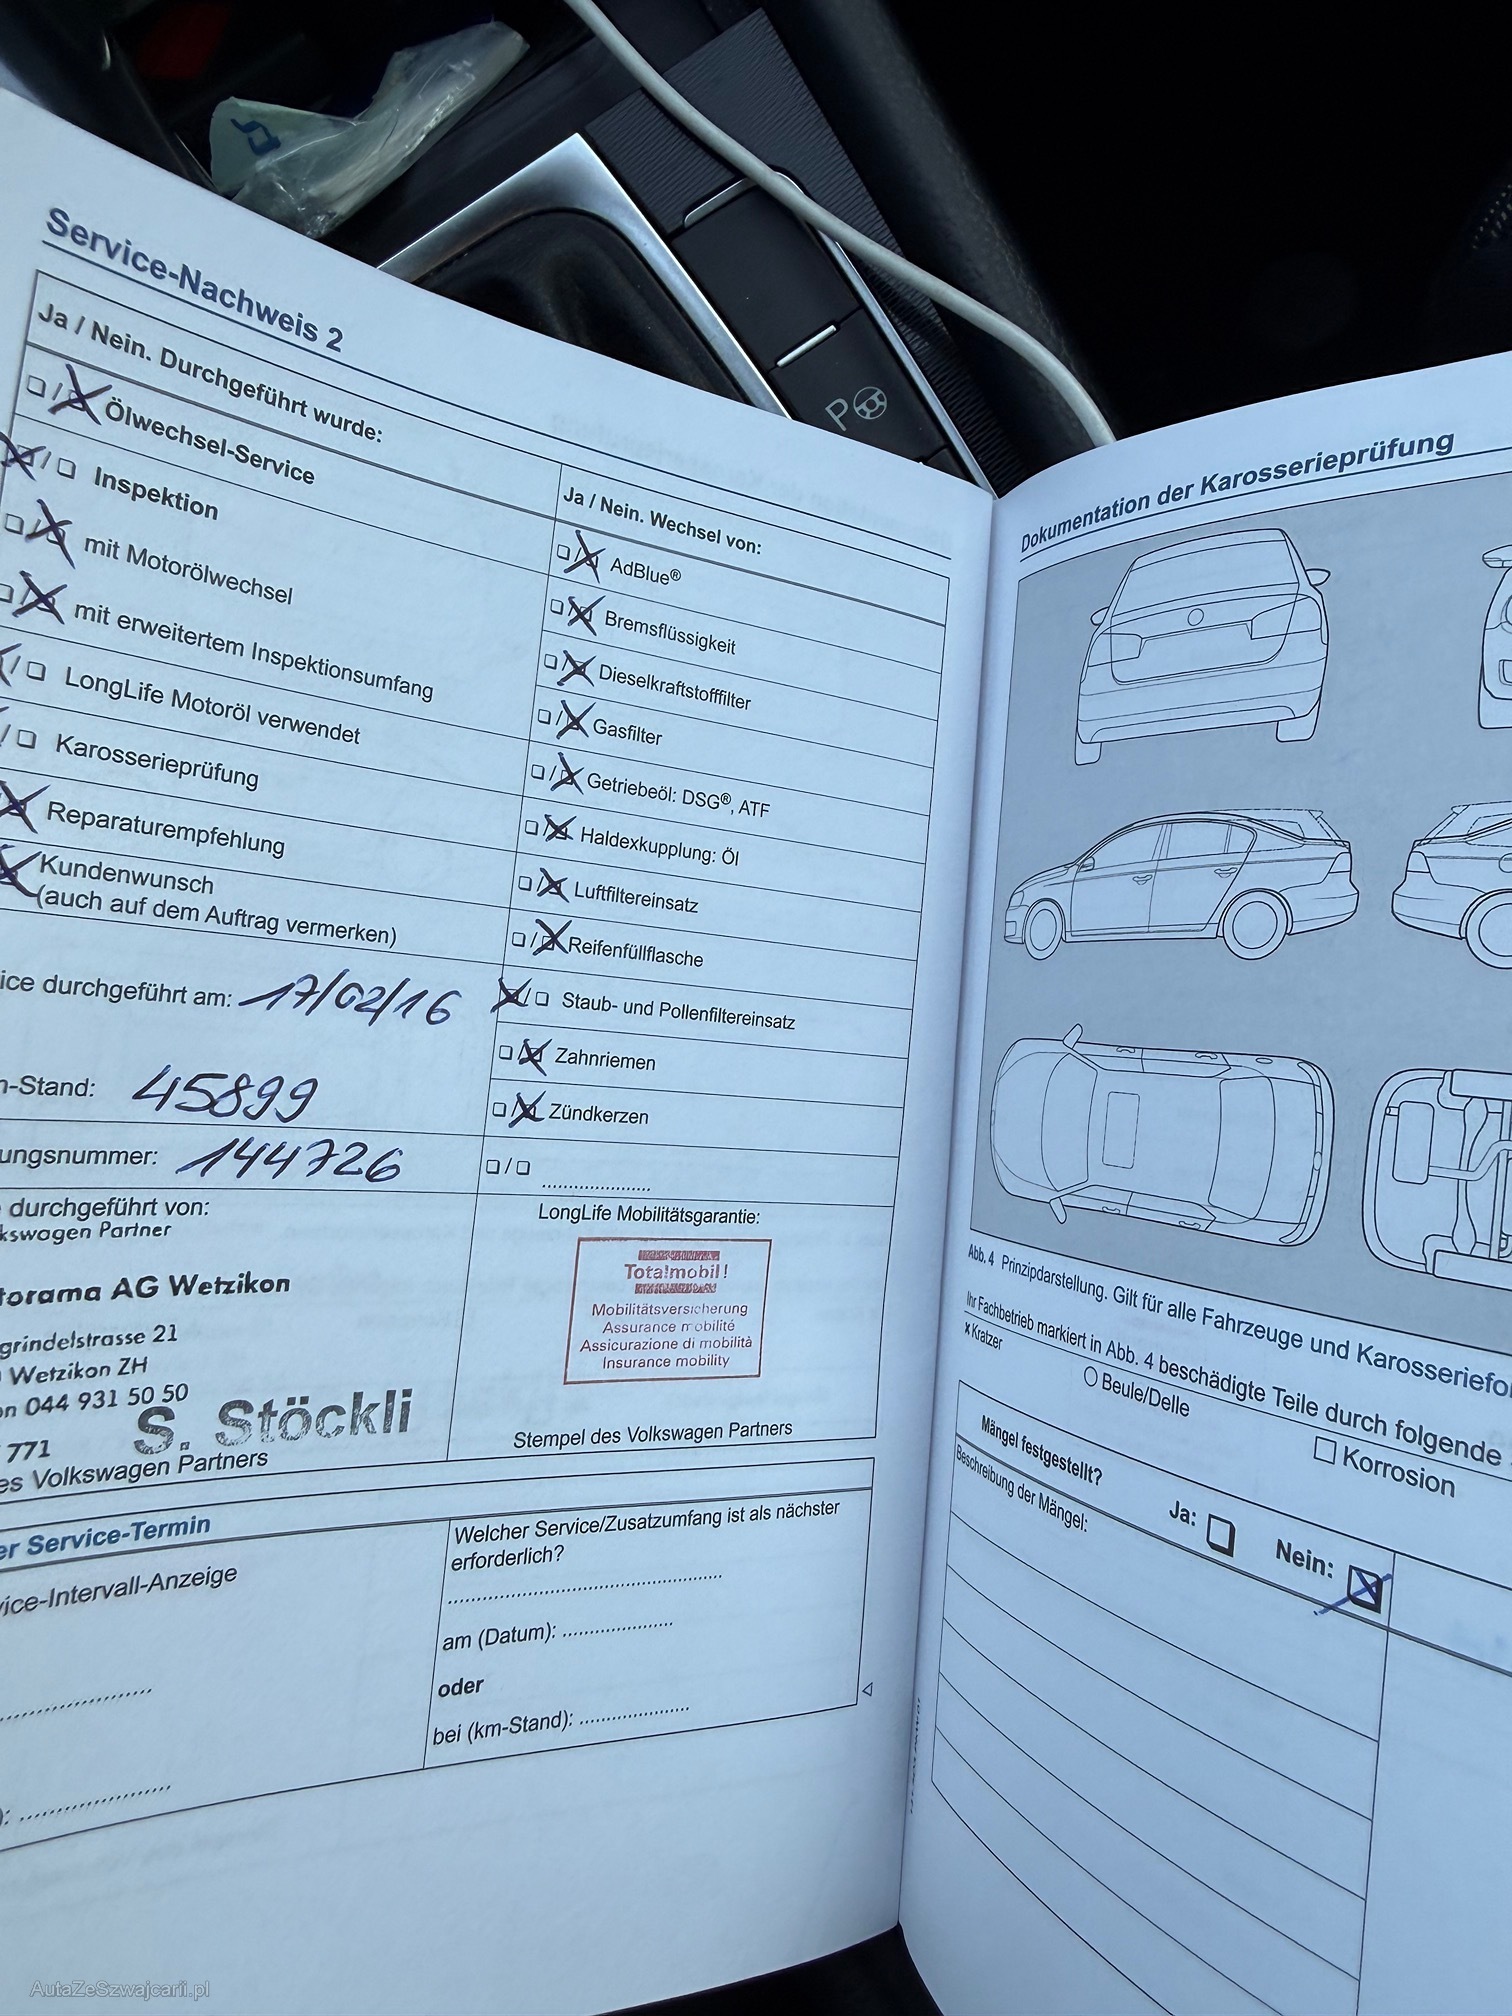 Service-Nachweis 2
Ja / Nein. Durchgeführt wurde:
Ölwechsel-Service
Inspektion
mit Motorölwechsel
mit erweitertem Inspektionsumfang
LongLife Motoröl verwendet
Karosserieprüfung
Reparaturempfehlung
Kundenwunsch
(auch auf dem Auftrag vermerken)
ice durchgeführt am: 17/02/16
n-Stand: 45899
ungsnummer: 144726
durchgeführt von:
kswagen Partner
torama AG Wetzikon
grindelstrasse 21
Wetzikon ZH
on 044 931 50 50
771
S. Stöckli
es Volkswagen Partners
Ja / Nein. Wechsel von:
AdBlue®
Bremsflüssigkeit
Dieselkraftstofffilter
Gasfilter
Getriebeöl: DSG®, ATF
Haldexkupplung: Öl
Luftfiltereinsatz
Reifenfüllflasche
Staub- und Pollenfiltereinsatz
Zahnriemen
Zündkerzen
LongLife Mobilitätsgarantie:
Totalmobil!
Mobilitätsversicherung
Assurance mobilité
Assicurazione di mobilità
Insurance mobility
Stempel des Volkswagen Partners
er Service-Termin
vice-Intervall-Anzeige
Welcher Service/Zusatzumfang ist als nächster
erforderlich?
am (Datum):
oder
bei (km-Stand):
P
Dokumentation der Karosserieprüfung
Abb. 4 Prinzipdarstellung. Gilt für alle Fahrzeuge und Karosseriefo
Ihr Fachbetrieb markiert in Abb. 4 beschädigte Teile durch folgende
x Kratzer
Beule/Delle
Korrosion
Mängel festgestellt?
Ja:
Nein:
Beschreibung der Mängel:
AutaZeSzwajcarii.pl